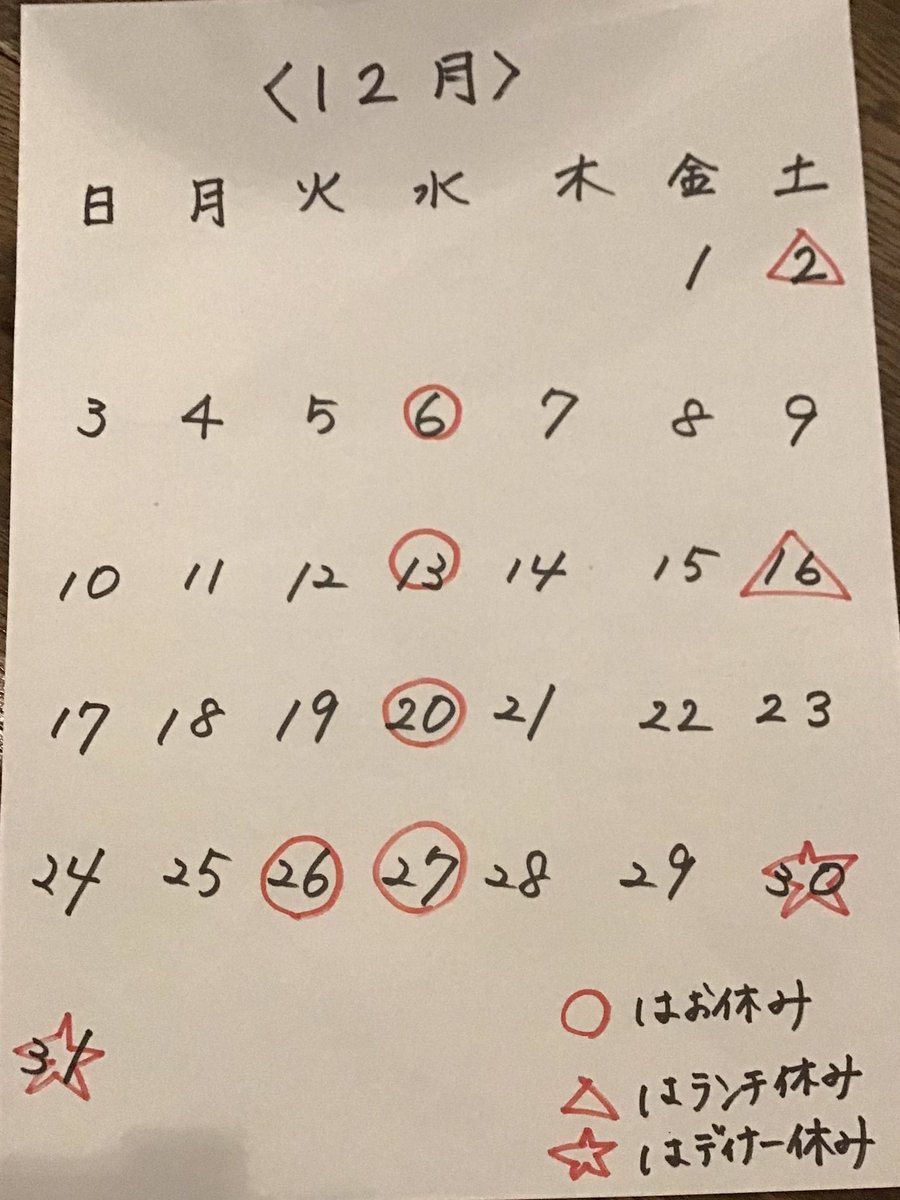 〈12月〉
日 月 火 水 木 金 土
1 2
3 4 5 6 7 8 9
10 11 12 13 14 15 16
17 18 19 20 21 22 23
24 25 26 27 28 29 30
31
○はお休み
△はランチ休み
☆はディナー休み